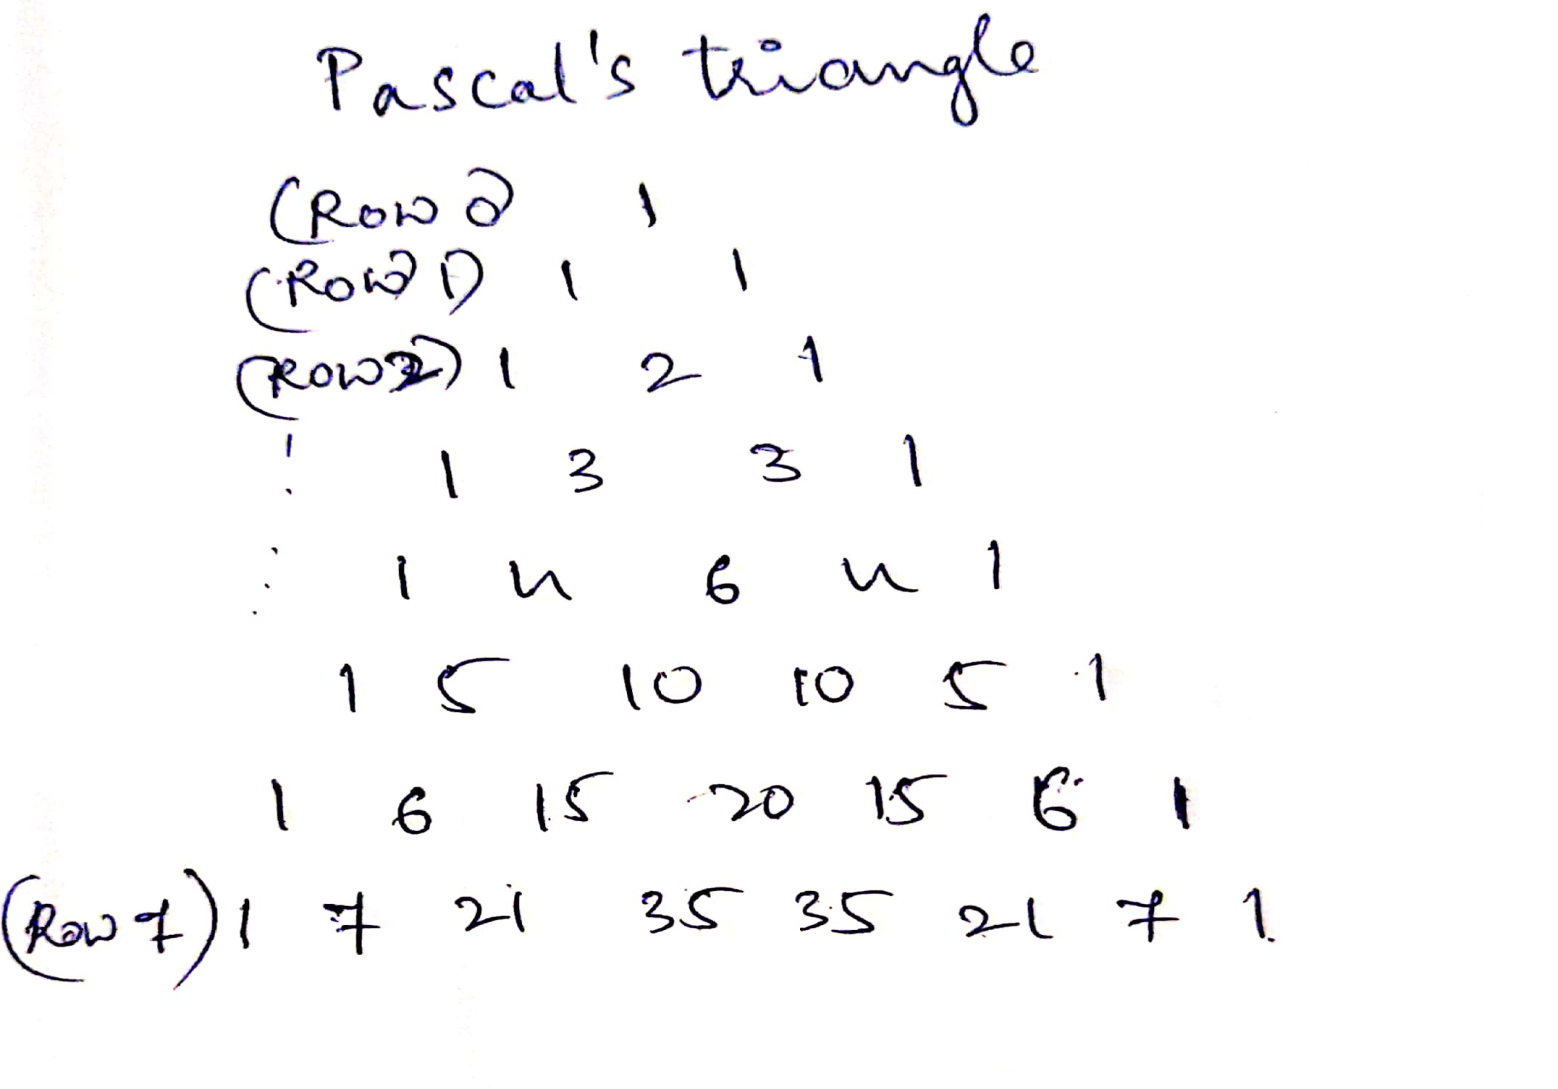 Pascal's triangle
(Row 0) 1
(Row 1) 1 1
(Row 2) 1 2 1
1 3 3 1
1 4 6 4 1
1 5 10 10 5 1
1 6 15 20 15 6 1
(Row 7) 1 7 21 35 35 21 7 1